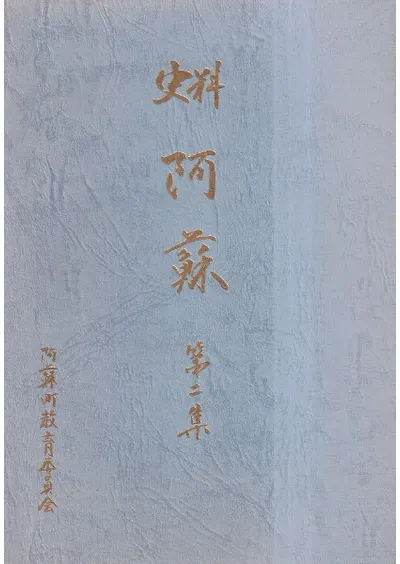 史料
阿蘇
第二集
阿蘇町教育委員会